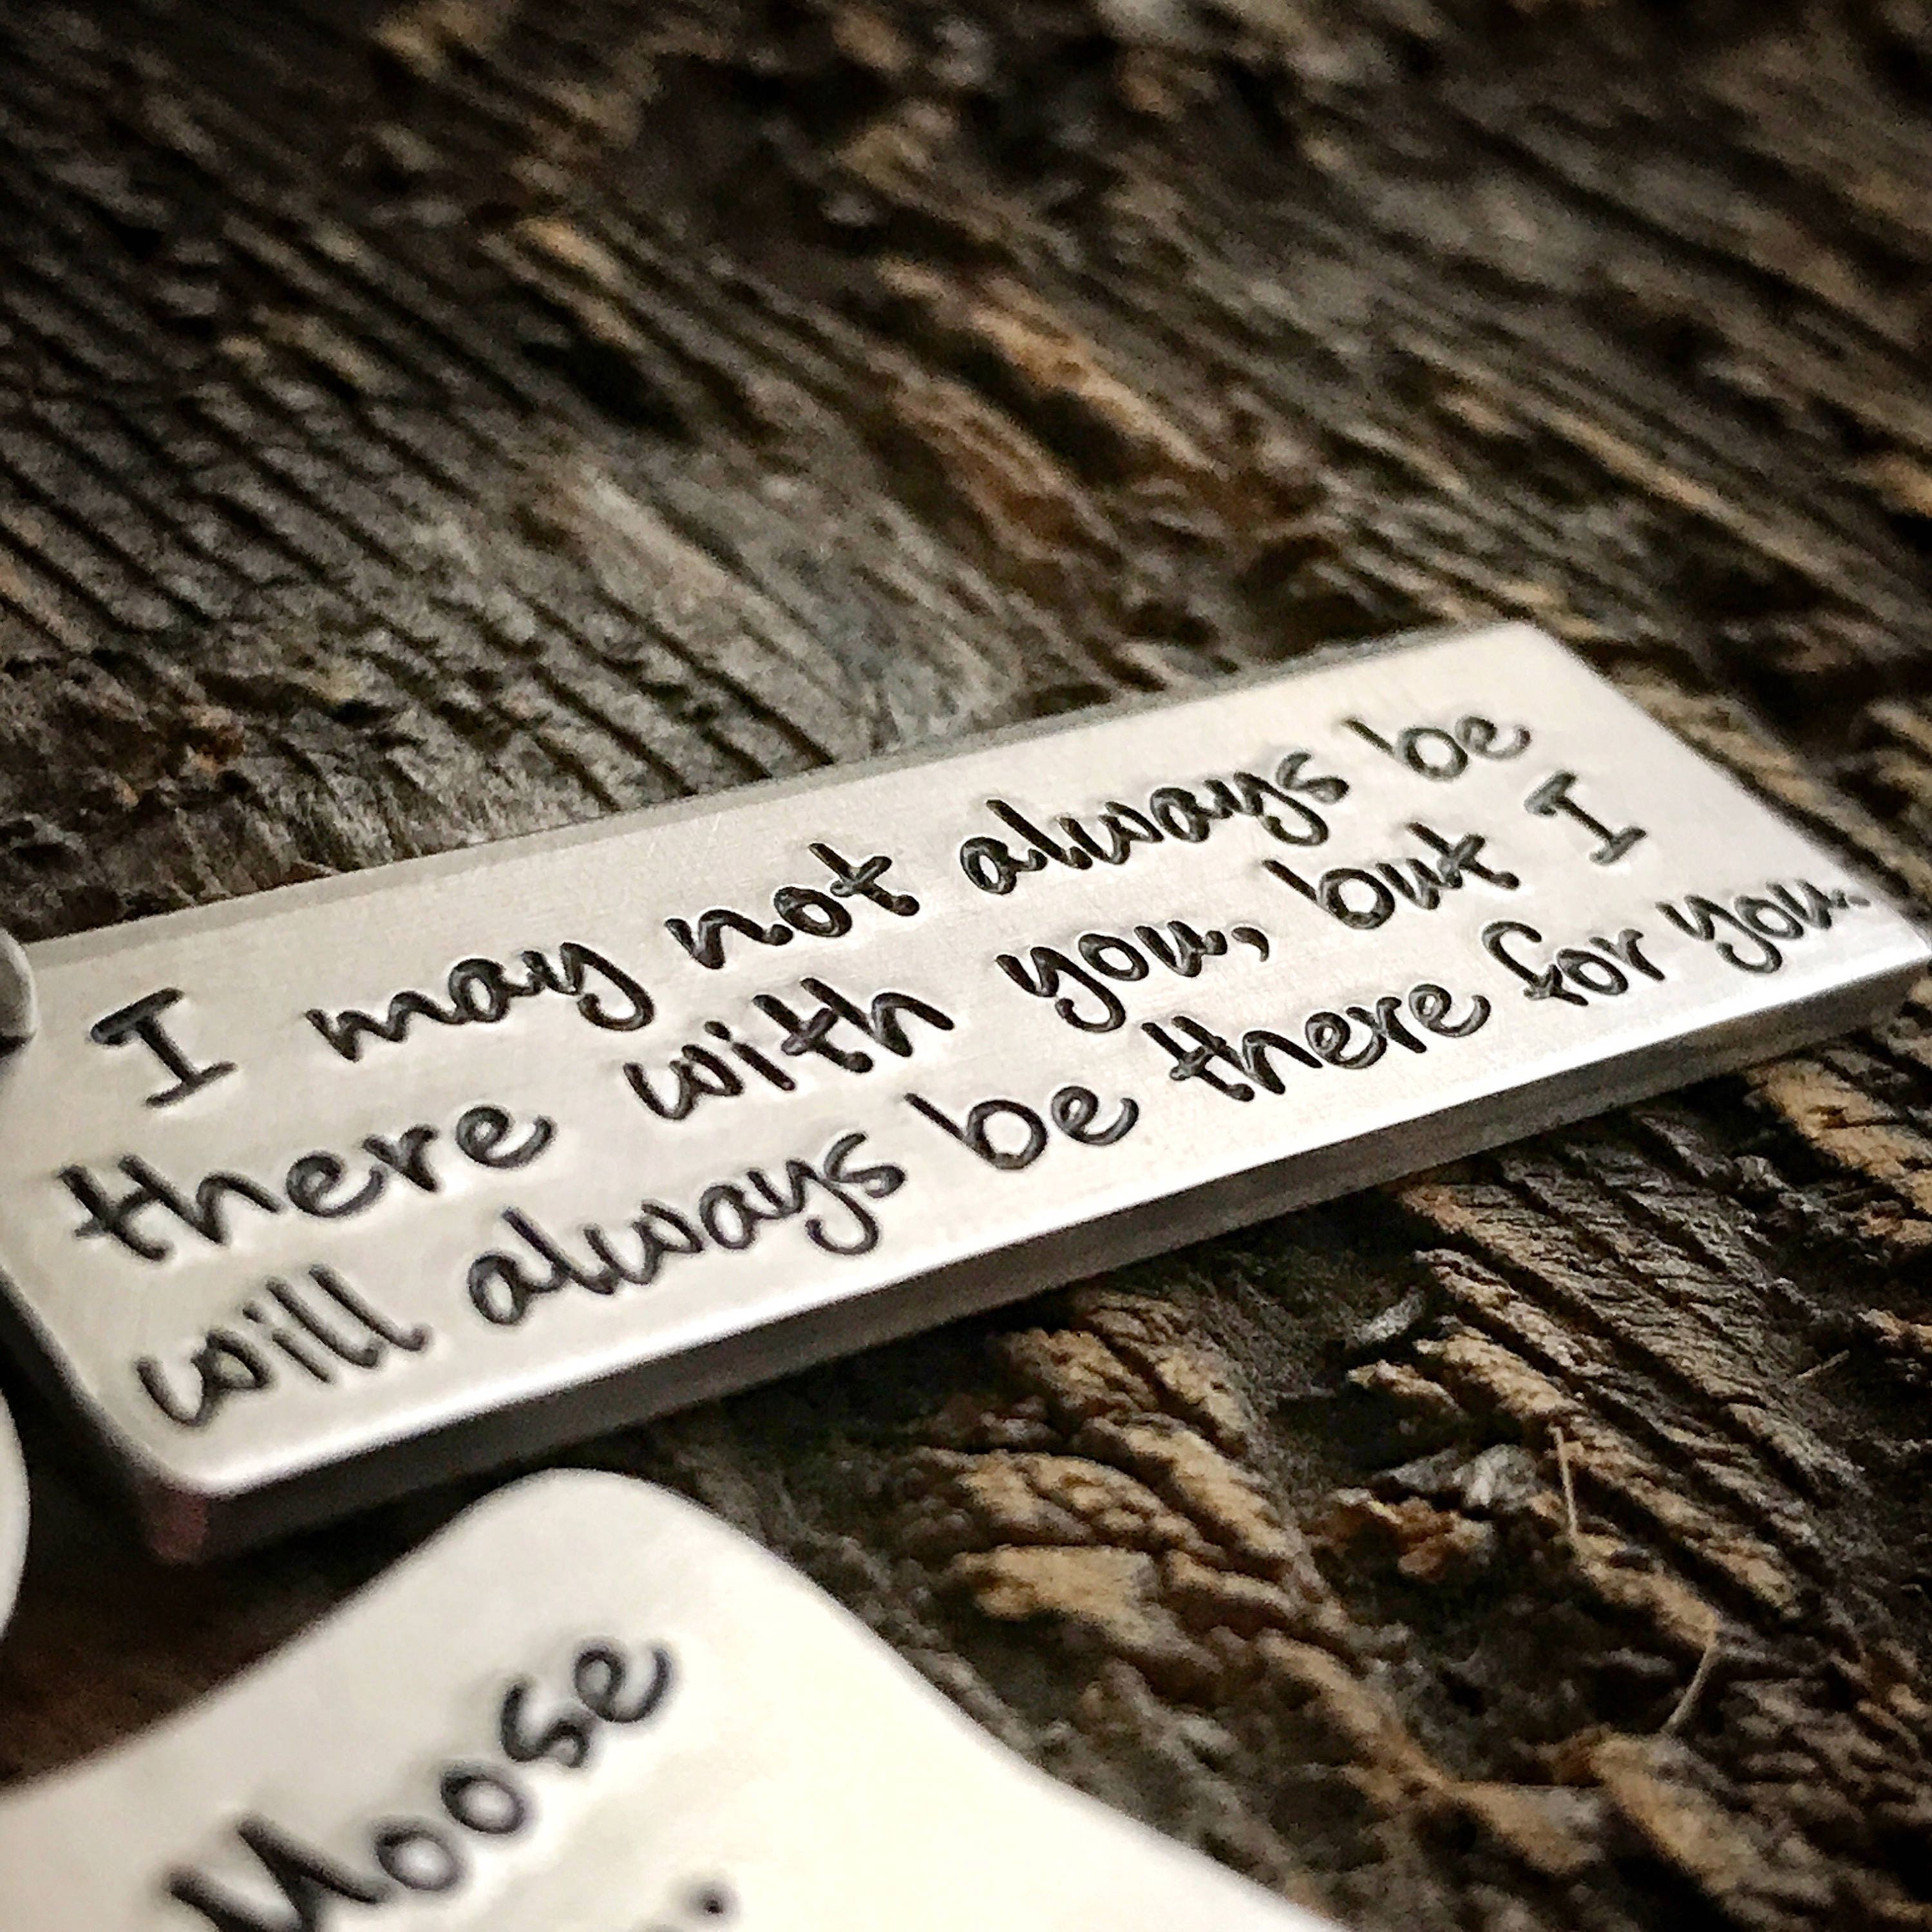 I may not always be
there with you, but I
will always be there for you.
Moose